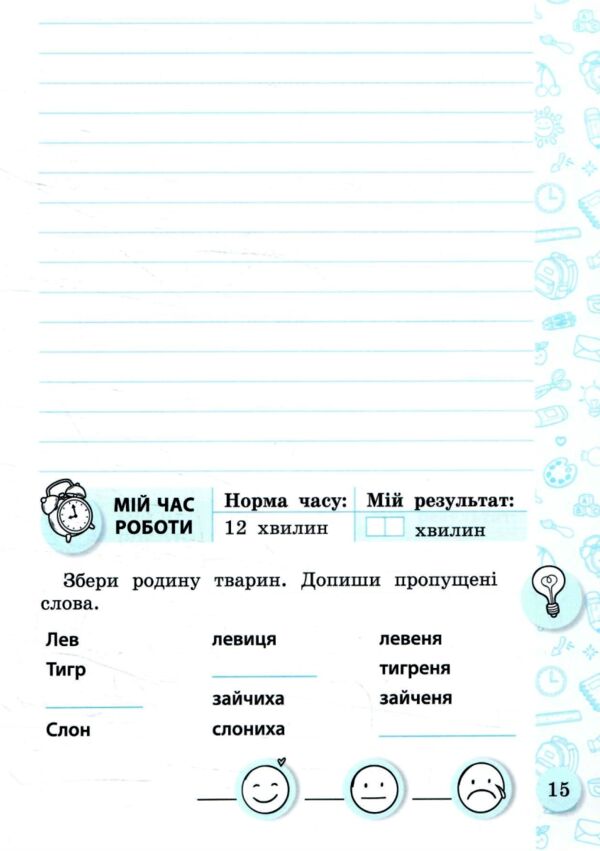 МІЙ ЧАС РОБОТИ
Норма часу: Мій результат:
12 хвилин хвилин
Збери родину тварин. Допиши пропущені
слова.
Лев левиця левеня
Тигр тигреня
зайчиха зайченя
Слон слониха
15